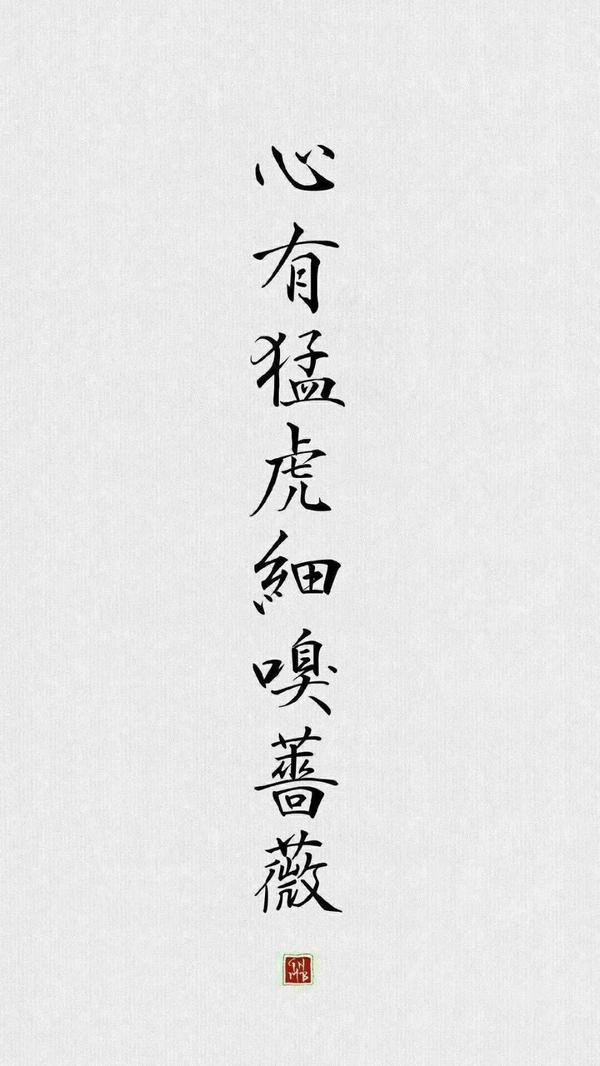 心有猛虎細嗅薔薇